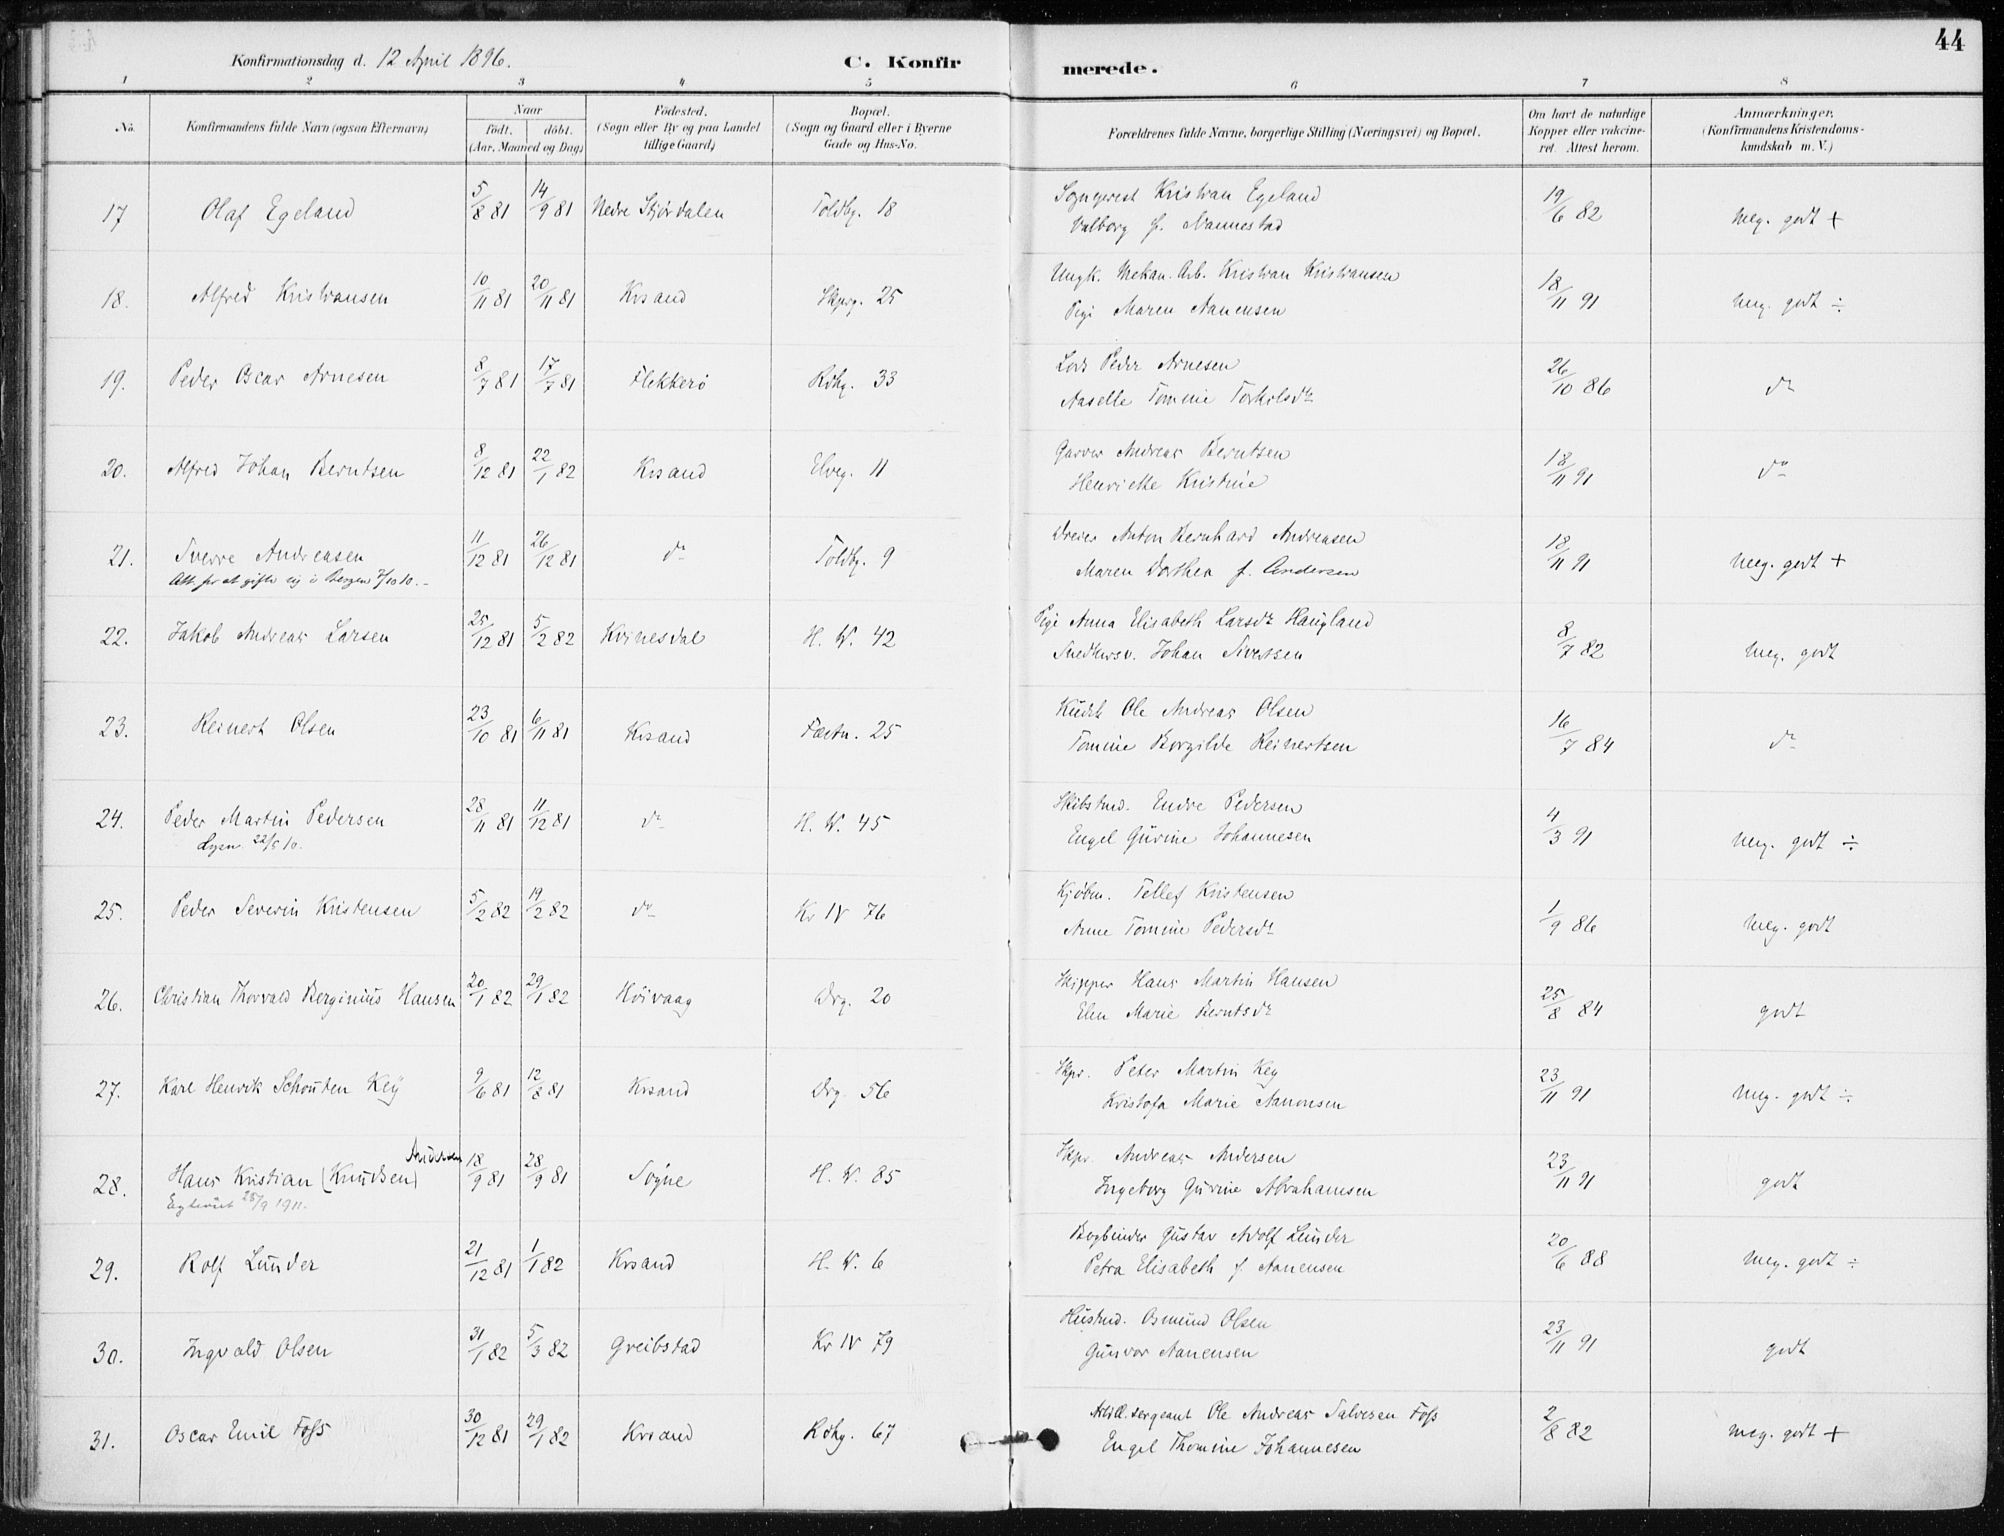 44
Konfirmationsdag d. 12 April 1896.
C. Konfirmerede.
1 2 3 4 5 6 7 8
No.
Konfirmandens fulde Navn (ogsaa Efternavn)
Naar
födt. döbt.
(Aar, Maaned og Dag)
Födested.
(Sogn eller By og paa Landet
tillige Gaard)
Bopæl.
(Sogn og Gaard eller i Byerne
Gade og Hus-No.
Forældrenes fulde Navne, borgerlige Stilling (Næringsvei) og Bopæl.
Om havt de naturlige
Kopper eller vakcine-
ret. Attest herom.
Anmærkninger.
(Konfirmandens Kristendoms-
kundskab m. V.)
17 Olaf Egeland 5/8 81 14/9 81 Nedre Stjørdalen Toldbg. 18 Sogneprest Kristian Egeland 19/6 82 meg. godt +
Valborg f. Nannestad
18. Alfred Kristiansen 10/11 81 20/11 81 Krsand Skprg. 25 Ungk. Mekan. Arb. Kristian Kristiansen 18/11 91 meg. godt ÷
Pige Maren Aanensen
19. Peder Oscar Arnesen 8/7 81 17/7 81 Flekkerö Rdhg. 33 Lods Peder Arnesen 26/10 86 do
Aaselle Tomine Torkilsdtr
20. Alfred Johan Berntsen 8/12 81 22/1 82 Krsand Elveg. 11 Garver Andreas Berntsen 18/11 91 do
Henriette Kristine
21. Sverre Andreasen 11/12 81 26/12 81 do Toldbg. 9 Dreier Anton Bernhard Andreasen 18/11 91 meg. godt +
Att. for at gifte sig i Bergen 7/10 10.-
Maren Dorthea f. Andersen
22. Jakob Andreas Larsen 25/12 81 5/2 82 Kvinesdal H. W. 42 Pige Anna Elisabeth Larsdtr Haugland 8/7 82 meg. godt
Snedkersv. Johan Sivertsen
23. Reinert Olsen 23/10 81 6/11 81 Krsand Fæstn. 25 Kudsk Ole Andreas Olsen 16/7 84 do
Tomine Borgilde Reinertsen
24. Peder Martin Pedersen 28/11 81 11/12 81 do H. W. 45 Skibstmd. Endre Pedersen 4/3 91 meg. godt ÷
Lysn. 22/5 10.
Engel Gurine Johannesen
25. Peder Severin Kristensen 5/2 82 19/2 82 do Kr IV 76 Kjøbm. Tellef Kristensen 1/9 86 meg. godt
Anne Tomine Pedersdtr
26. Christian Thorvald Berginius Hansen 20/1 82 29/1 82 Höivaag Drg. 20 Skipper Hans Martin Hansen 25/8 84 godt
Elen Marie Berntsdtr
27. Karl Henrik Schouten Key 9/6 81 12/8 81 Krsand Drg. 56 Skpr. Peter Martin Key 23/11 91 meg. godt ÷
Kristofa Marie Aanonsen
28. Hans Kristian (Knudsen) Andersen 18/9 81 28/9 81 Søgne H. W. 85 Skpr. Andreas Andersen 23/11 91 godt
28/9 1911.
Ingeborg Gurine Abrahamsen
29. Rolf Lunder 21/12 81 1/1 82 Krsand H. W. 6 Bogbinder Gustav Adolf Lunder 20/6 88 meg. godt ÷
Petra Elisabeth f. Aanensen
30. Ingvald Olsen 31/1 82 5/3 82 Greibstad Kr IV 79 Hustmd. Osmund Olsen 23/11 91 godt
Gunvor Aanensen
31. Oscar Emil Foss 30/12 81 29/1 82 Krsand Rdhg. 67 Artill. sergeant Ole Andreas Salvesen Foss 2/8 82 meg. godt +
Engel Thomine Johannesen